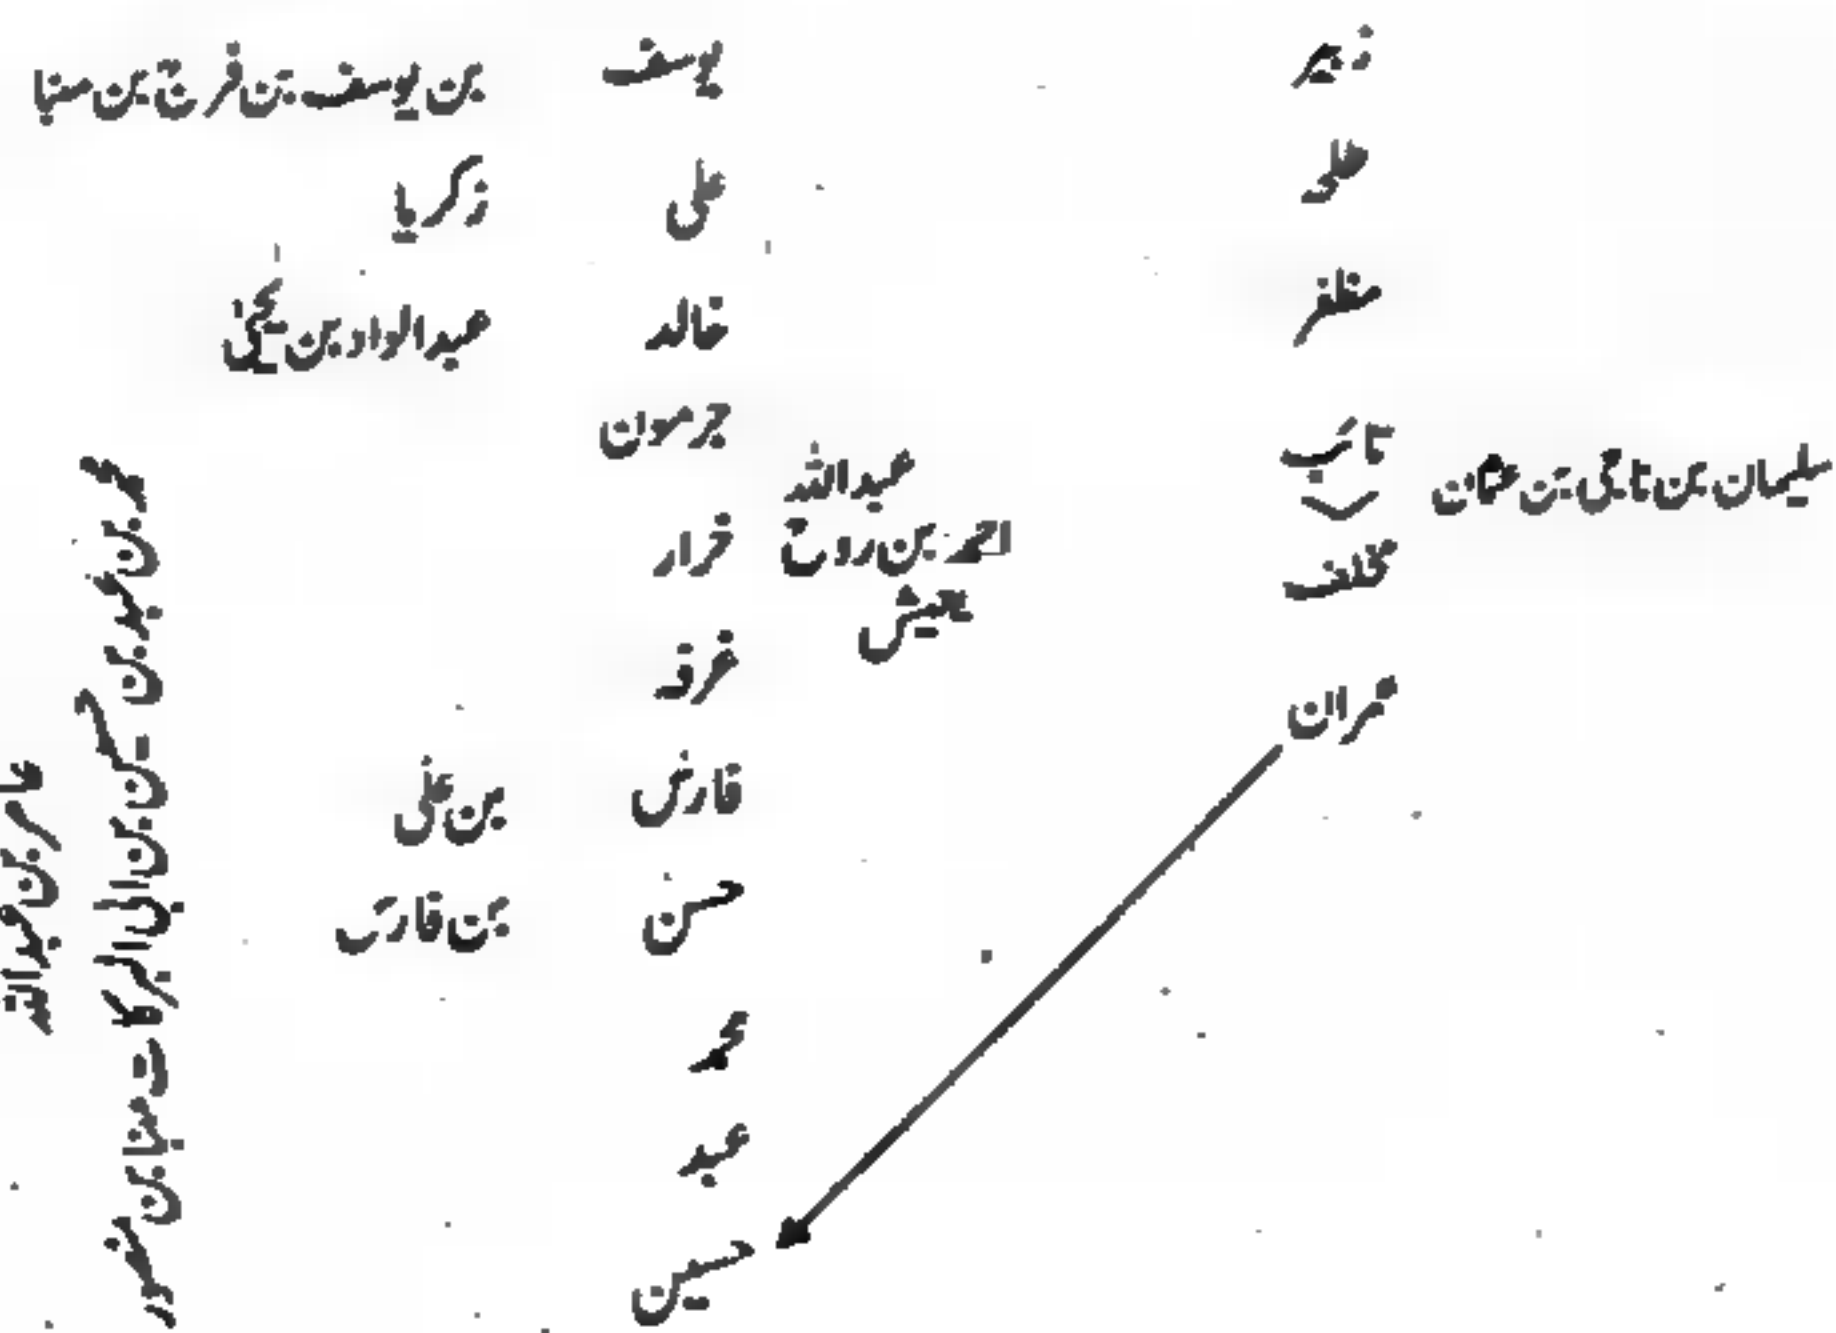 زبیر
علی
مظفر
تائب
سلیمان بن تاجی بن عثمان
مخلف
مہران
یوسف
بن یوسف بن فرح بن مہنا
علی
زکریا
خالد
عبدالواد بن یحییٰ
جرمون
عبداللہ
احمد بن روح
یعیش
خرار
غرفہ
فارض
بن علی
حسن
بن فارس
محمد
عبد
حسین
محمد بن عبد بن حسن بن ابی البرکات مہنا بن منصور
عامر بن عبداللہ